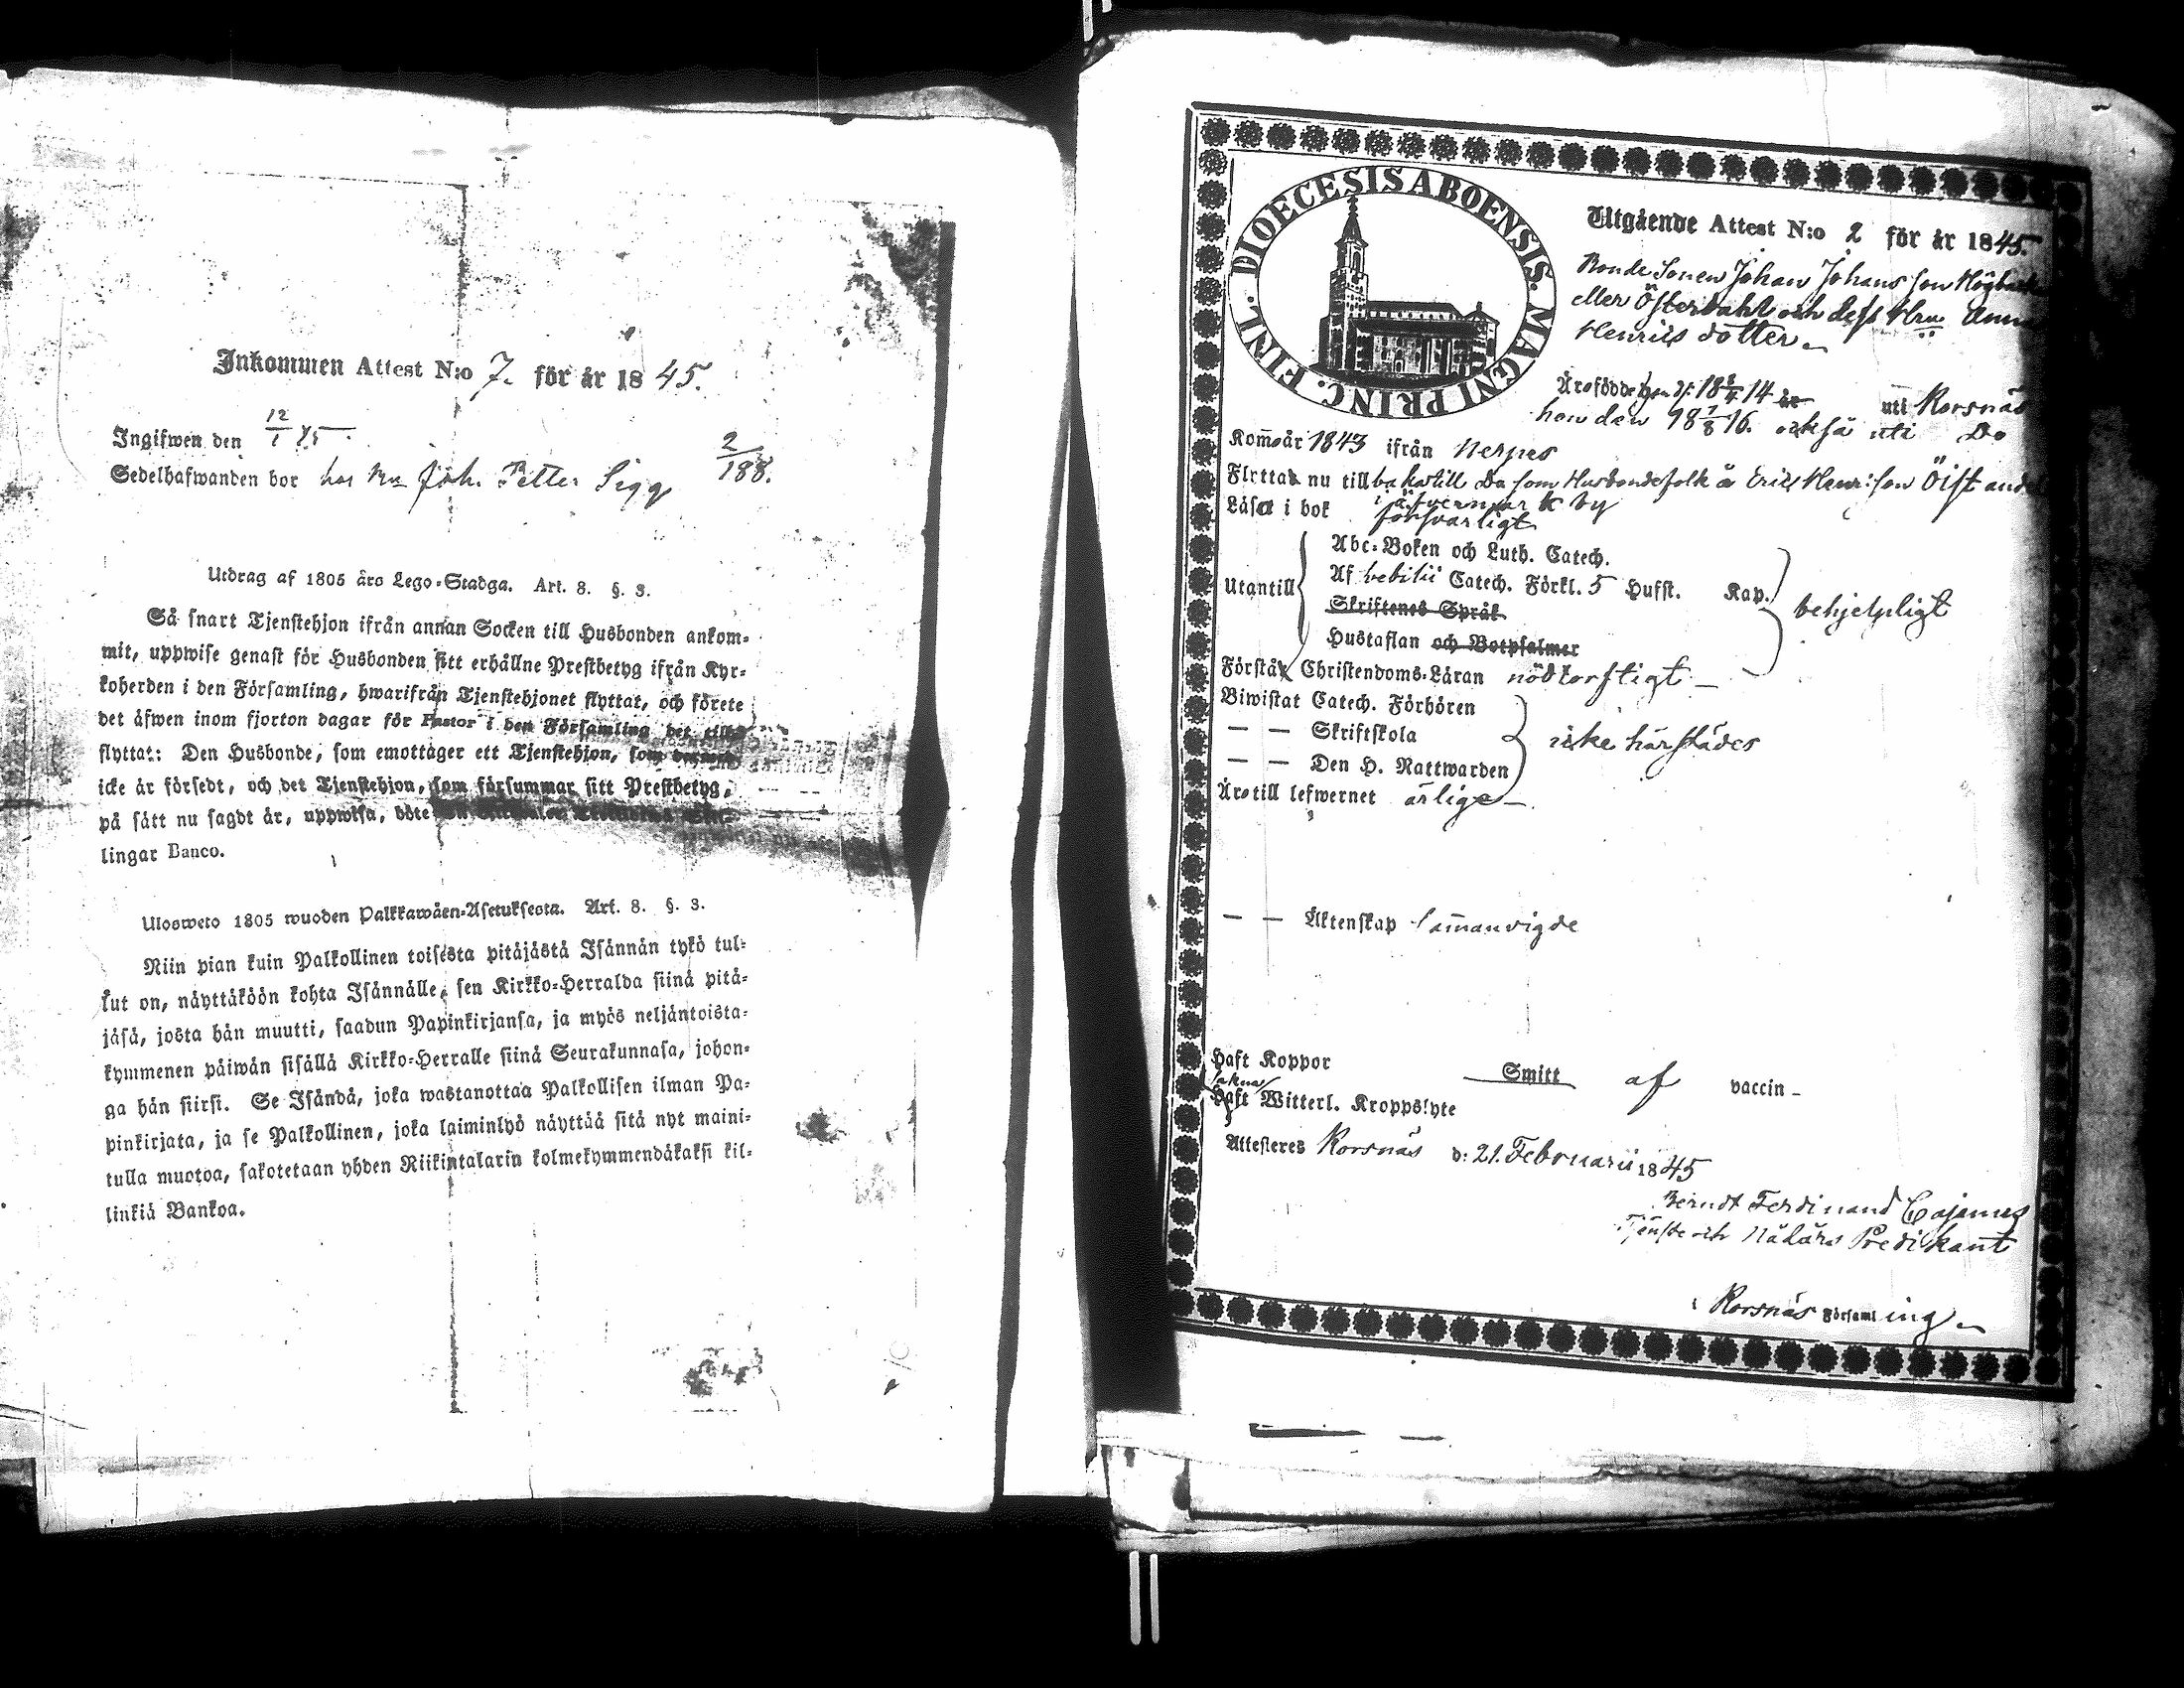 Inkommen Attest N:o 7. för år 1845.
Ingifwen den 12/1 45.
Sedelhafwanden bor hos Joh. Petter Sigg 2/188.
Utdrag af 1805 års Lego-Stadga. Art. 8. §. 3.
Så snart Tjenstehjon ifrån annan Socken till Husbonden ankom-
mit, uppwise genast för Husbonden sitt erhållne Prestbetyg ifrån Kyr-
koherden i den Församling, hwarifrån Tjenstehjonet flyttat, och förete
det äfwen inom fjorton dagar för Pastor i den Församling det till
flyttat: Den Husbonde, som emottager ett Tjenstehjon, som
icke är försedt, och det Tjenstehjon, som försummar sitt Prestbetyg,
på sätt nu sagdt är, uppwisa, böte
lingar Banco.
Ulosweto 1805 wuoden Palkkawäen-Asetuksesta. Art. 8. §. 3.
Niin pian kuin Palkollinen toisesta pitäjästä Isännän tykö tul-
lut on, näyttäköön kohta Isännälle, sen Kirkko-Herralda siinä pitä-
jäsä, josta hän muutti, saadun Papinkirjansa, ja myös neljäntoista-
kymmenen päiwän sisällä Kirkko-Herralle siinä Seurakunnasa, johon-
ga hän siirsi. Se Isändä, joka wastanottaa Palkollisen ilman Pa-
pinkirjata, ja se Palkollinen, joka laiminlyö näyttää sitä nyt maini-
tulla muotoa, sakotetaan yhden Riikintalarin kolmekymmendäkaksi kil-
linkiä Bankoa.
DIOECESIS ABOENSIS. MAGNI PRINC. FINL.
Utgående Attest N:o 2 för år 1845.
Bonde Sonen Johan Johansson Högback
eller Österdahl och dess Hru Anna
Henrics dotter.
Äro födde 18 3/4 14 år uti Korsnäs
hon den 18 7/8 16. också uti Do
Kom år 1843 ifrån Nerpes
Flyttat nu tillbaka till Do som Husbondefolk å Erics Henr:son Öist andel
i öfvermark by
Läsa i bok försvarligt
Utantill
Abc-Boken och Luth. Catech.
Af Catech. Förkl. 5 Hufst. Kap.
Skriftenes Språk
Hustaflan och Botpsalmer
behjelpligt
Förstå Christendoms-Läran nödtorftigt
Biwistat Catech. Förhören
— — Skriftskola
— — Den H. Nattwarden
icke härstädes
Äro till lefwernet ärliga
— — Äktenskap Sammanvigde
Haft Koppor Smitt af vaccin
sakna
Haft Witterl. Kroppslyte
Attesteres Korsnäs d: 21. Februarii 1845
Berndt Ferdinand Cajanus
Tjenste och Nådårs Predikant
i Korsnäs Församling